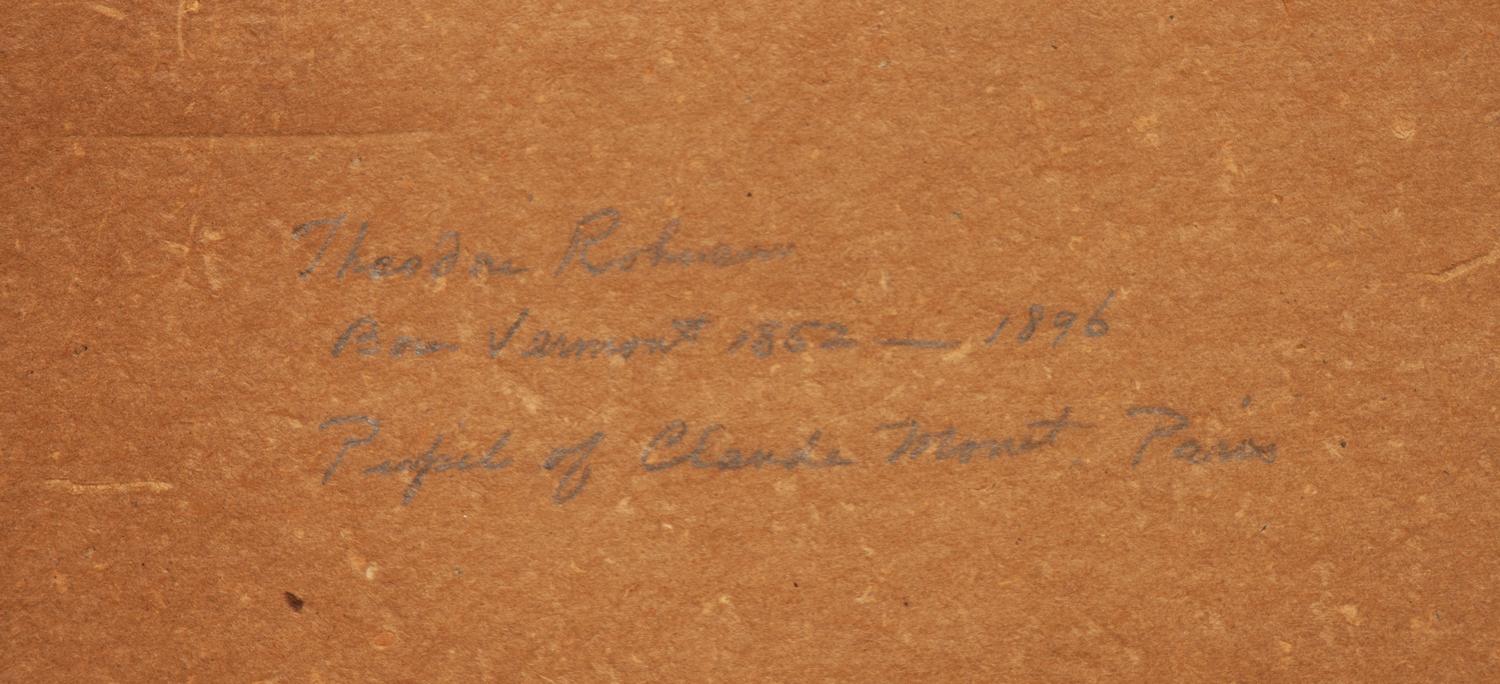 Theodore Robinson
Born Vermont 1852 — 1896
Pupil of Claude Monet, Paris